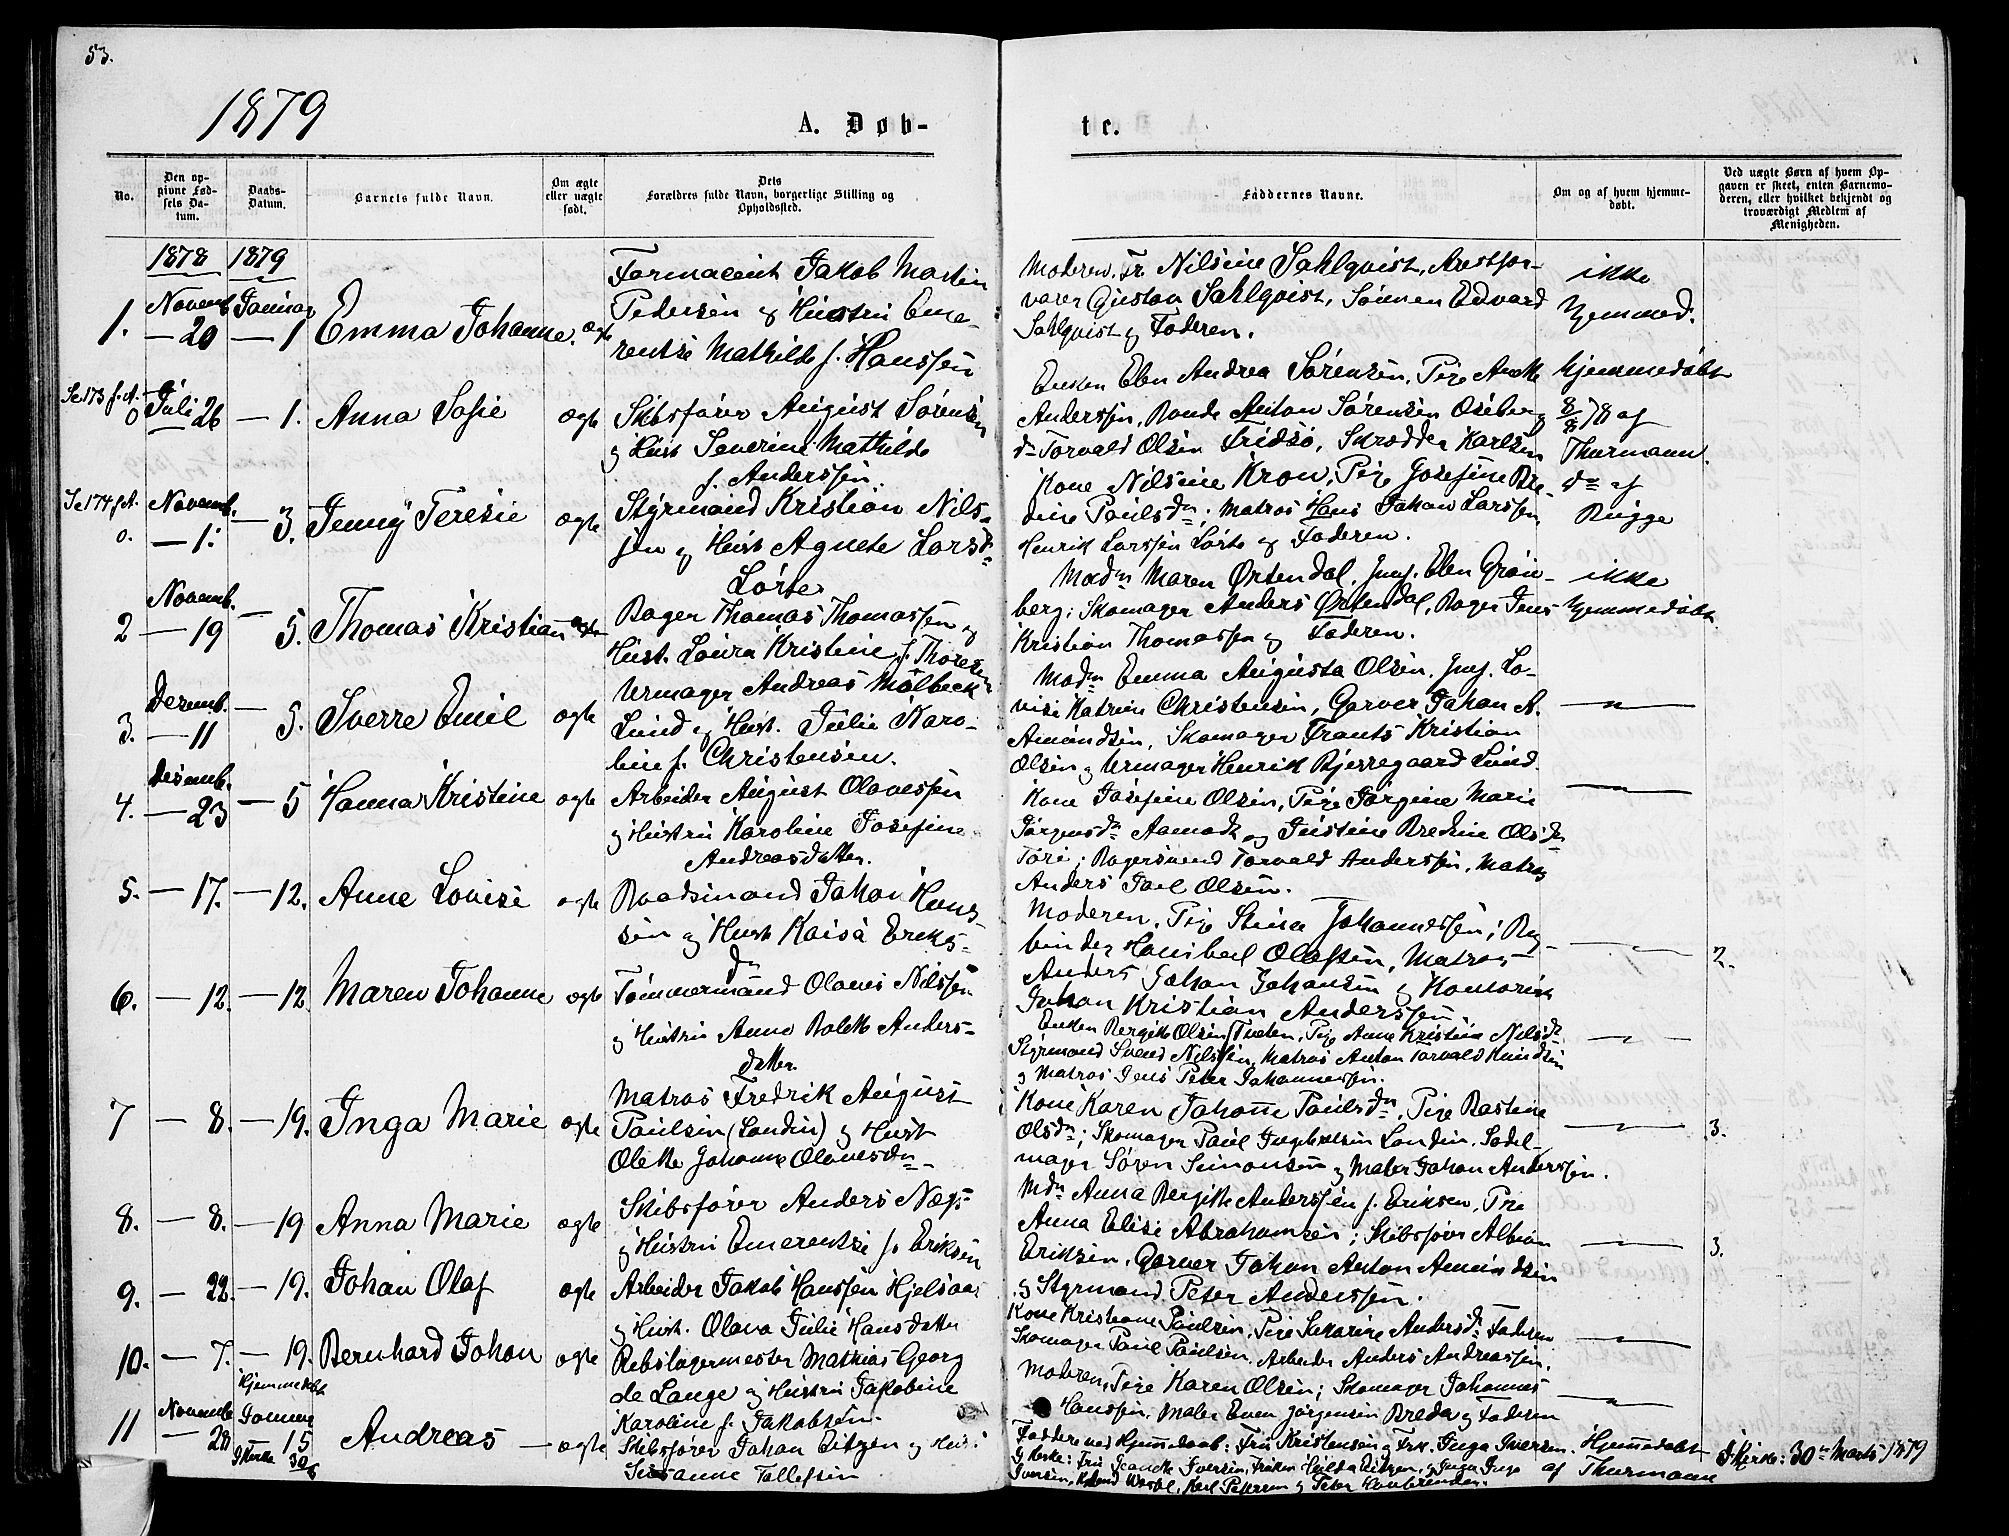 53.
1879
A. Døb-
te.
No.
Den op-
givne Fød-
sels Da-
tum.
Daabs-
Datum.
Barnets fulde Navn.
Om ægte
eller uægte
født.
Dets
Forældres fulde Navn, borgerlige Stilling og
Opholdssted.
Faddernes Navne.
Om og af hvem hjemme-
døbt.
Ved uægte Børn af hvem Op-
gaven er skeet, enten Barnemo-
deren, eller hvilket bekjendt og
troværdigt Medlem af
Menigheden.
1878 1879
1. Novemb. 20 Januar 1 Emma Johanne. ægte
Farmaceut Jakob Martin
Pedersen og Hustru Eme-
rentse Mathilde f. Hanssen
Moderen, Fr. Nilsine Sahlqvist,
Gustav Sahlqvist, Sønnen Edvard
Sahlqvist og Faderen.
ikke
hjemmed.
Se 173 f. A.
0 Juli 26 — 1. Anna Sofie ægte
Skibsfører August Sørensen
og Hust Severine Mathilde
f. Anderssen.
Enken Elen Andrea Sørensen, Pige Anette
Anderssen, Bonde Anton Sørensen Oseberg
Torvald Olsen Fridsø, Skrædder Karlsen
hjemmedøbt
8/8 78 af
Thurmann.
Se 174 f. A.
0. Novemb. — 1. — 3. Jenny Teresie ægte
Styrmand Kristian Nils-
sen og Hust Agnete Larsd.
Lørte
Kone Nilsine Kron, Pige Josefine Bre-
dine Paulsdn; Matros Hans Johan Larssen
Henrik Larssen Lørte og Faderen.
do af
Bugge
2 Novemb. — 19 — 5. Thomas Kristian ægte
Bager Thomas Thomassen og
Hust. Laura Kristine f. Thoresen
Madm Maren Ørtendal, Jmf. Elen Grøn-
berg; Skomager Anders Ørtendal, Bager Jens
Kristian Thomassen og Faderen.
ikke
hjemmedøbt
3. Decemb. — 11 — 5. Sverre Emil ægte
Urmager Andreas Mølbeck
Lund og Hust. Julie Karo-
line f. Christensen.
Madm Emma Augusta Olsen, Jmf. Lo-
vise Katrine Christensen, Garver Johan A.
Amundsen, Skomager Frants Kristian
Olsen og Urmager Henrik Bjerregaard Lund.
— " —
4. Desemb. — 23 — 5 Hanna Kristine ægte
Arbeider August Olavessen
og Hustru Karoline Josefine
Andreasdatter.
Kone Josefine Olsen, Pige Jørgine Marie
Jørgensdn Aamodt og Justine Bredine Olsdn
Torvald Anderssen, Matros
Anders Olsen.
— " —
5. — 17. — 12. Anne Lovise ægte
Baadsmand Johan Hans-
sen og Hust Kaisa Eriks-
dn
Moderen, Pige Stina Johannessen; Bog-
binder Hanibal Olafsen, Matros
Anders Johan Johansen og Kontorist
Johan Kristian Anderssen.
— " —
2.
6. — 12. — 12. Maren Johanne ægte
Tømmermand Olaves Nilssen
og Hustru Anne Bolette Anders-
datter.
Enken Bergitte Olsen Tveten, Pige Anne Kristine Nilsdn
Styrmand Svend Nilssen, Matros Anton Torvald Knudsen
og Matros Jens Peter Johannessen.
— " —
7 — 8. — 19. Inga Marie ægte
Matros Fredrik August
Paulsen (Landin) og Hust
Olette Johanne Olavesdn
Kone Karen Johanne Paulsdn, Pige Bastine
Olsdn; Skomager Paul Ingebretsen Landin, Sadel-
mager Søren Simonsen og Maler Johan Anderssen.
— " —
3.
8. — 8. — 19 Anna Marie ægte
Skibsfører Anders Næss
og Hustru Emerentse f. Eriksen
Mdm Anna Bergitte Anderssen f. Eriksen, Pige
Anna Elise Abrahamsen; Skibsfører Albion
Eriksen, Garver Johan Anton Amundsen
og Styrmand Peter Anderssen.
— " —
3.
9. — 22. — 19. Johan Olaf ægte
Arbeider Jakob Hanssen Hjelsaas
og Hust. Olava Julie Hansdatter
Kone Kristiane Paulsen, Pige Sekarine Andersdn Faderen
Skomager Paul Paulsen, Arbeider Anders Andreassen.
— " —
10. — 7. — 19. Bernhard Johan ægte
Rebslagermester Mathias Georg
de Lange og Hustru Jakobine
Karoline f. Jakobsen.
Moderen, Pige Karen Olsen; Skomager Johannes
Hanssen, Maler Even Jørgensen Breda og Faderen
— " —
11 Novemb — 28 Hjemmedøbt Januar 15 I Kirke 30/3 Andreas — ægte
Skibsfører Johan Eitzen og Hust
Susanne Tollefsen
Faddere ved Hjemmedaab: Fru Kristensen og Frk. Inga Iversen.
I Kirke: Fru Jeanette Iversen, Frøken Hilda Eitzen, Inga
Iversen, Karl Petersen og Peter
Hjemmedøbt
af Thurmann
I Kirke: 30te Marts 1879